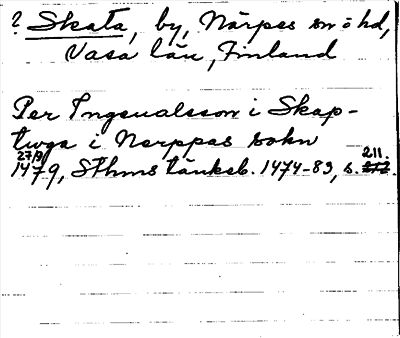 ? Skata, by, Närpes sn o hd,
Vasa län, Finland
Per Ingeualsson i Skap-
twga i Nerppes sokn
27/9
1479, Sthms tänkeb. 1474-83, s. 211.